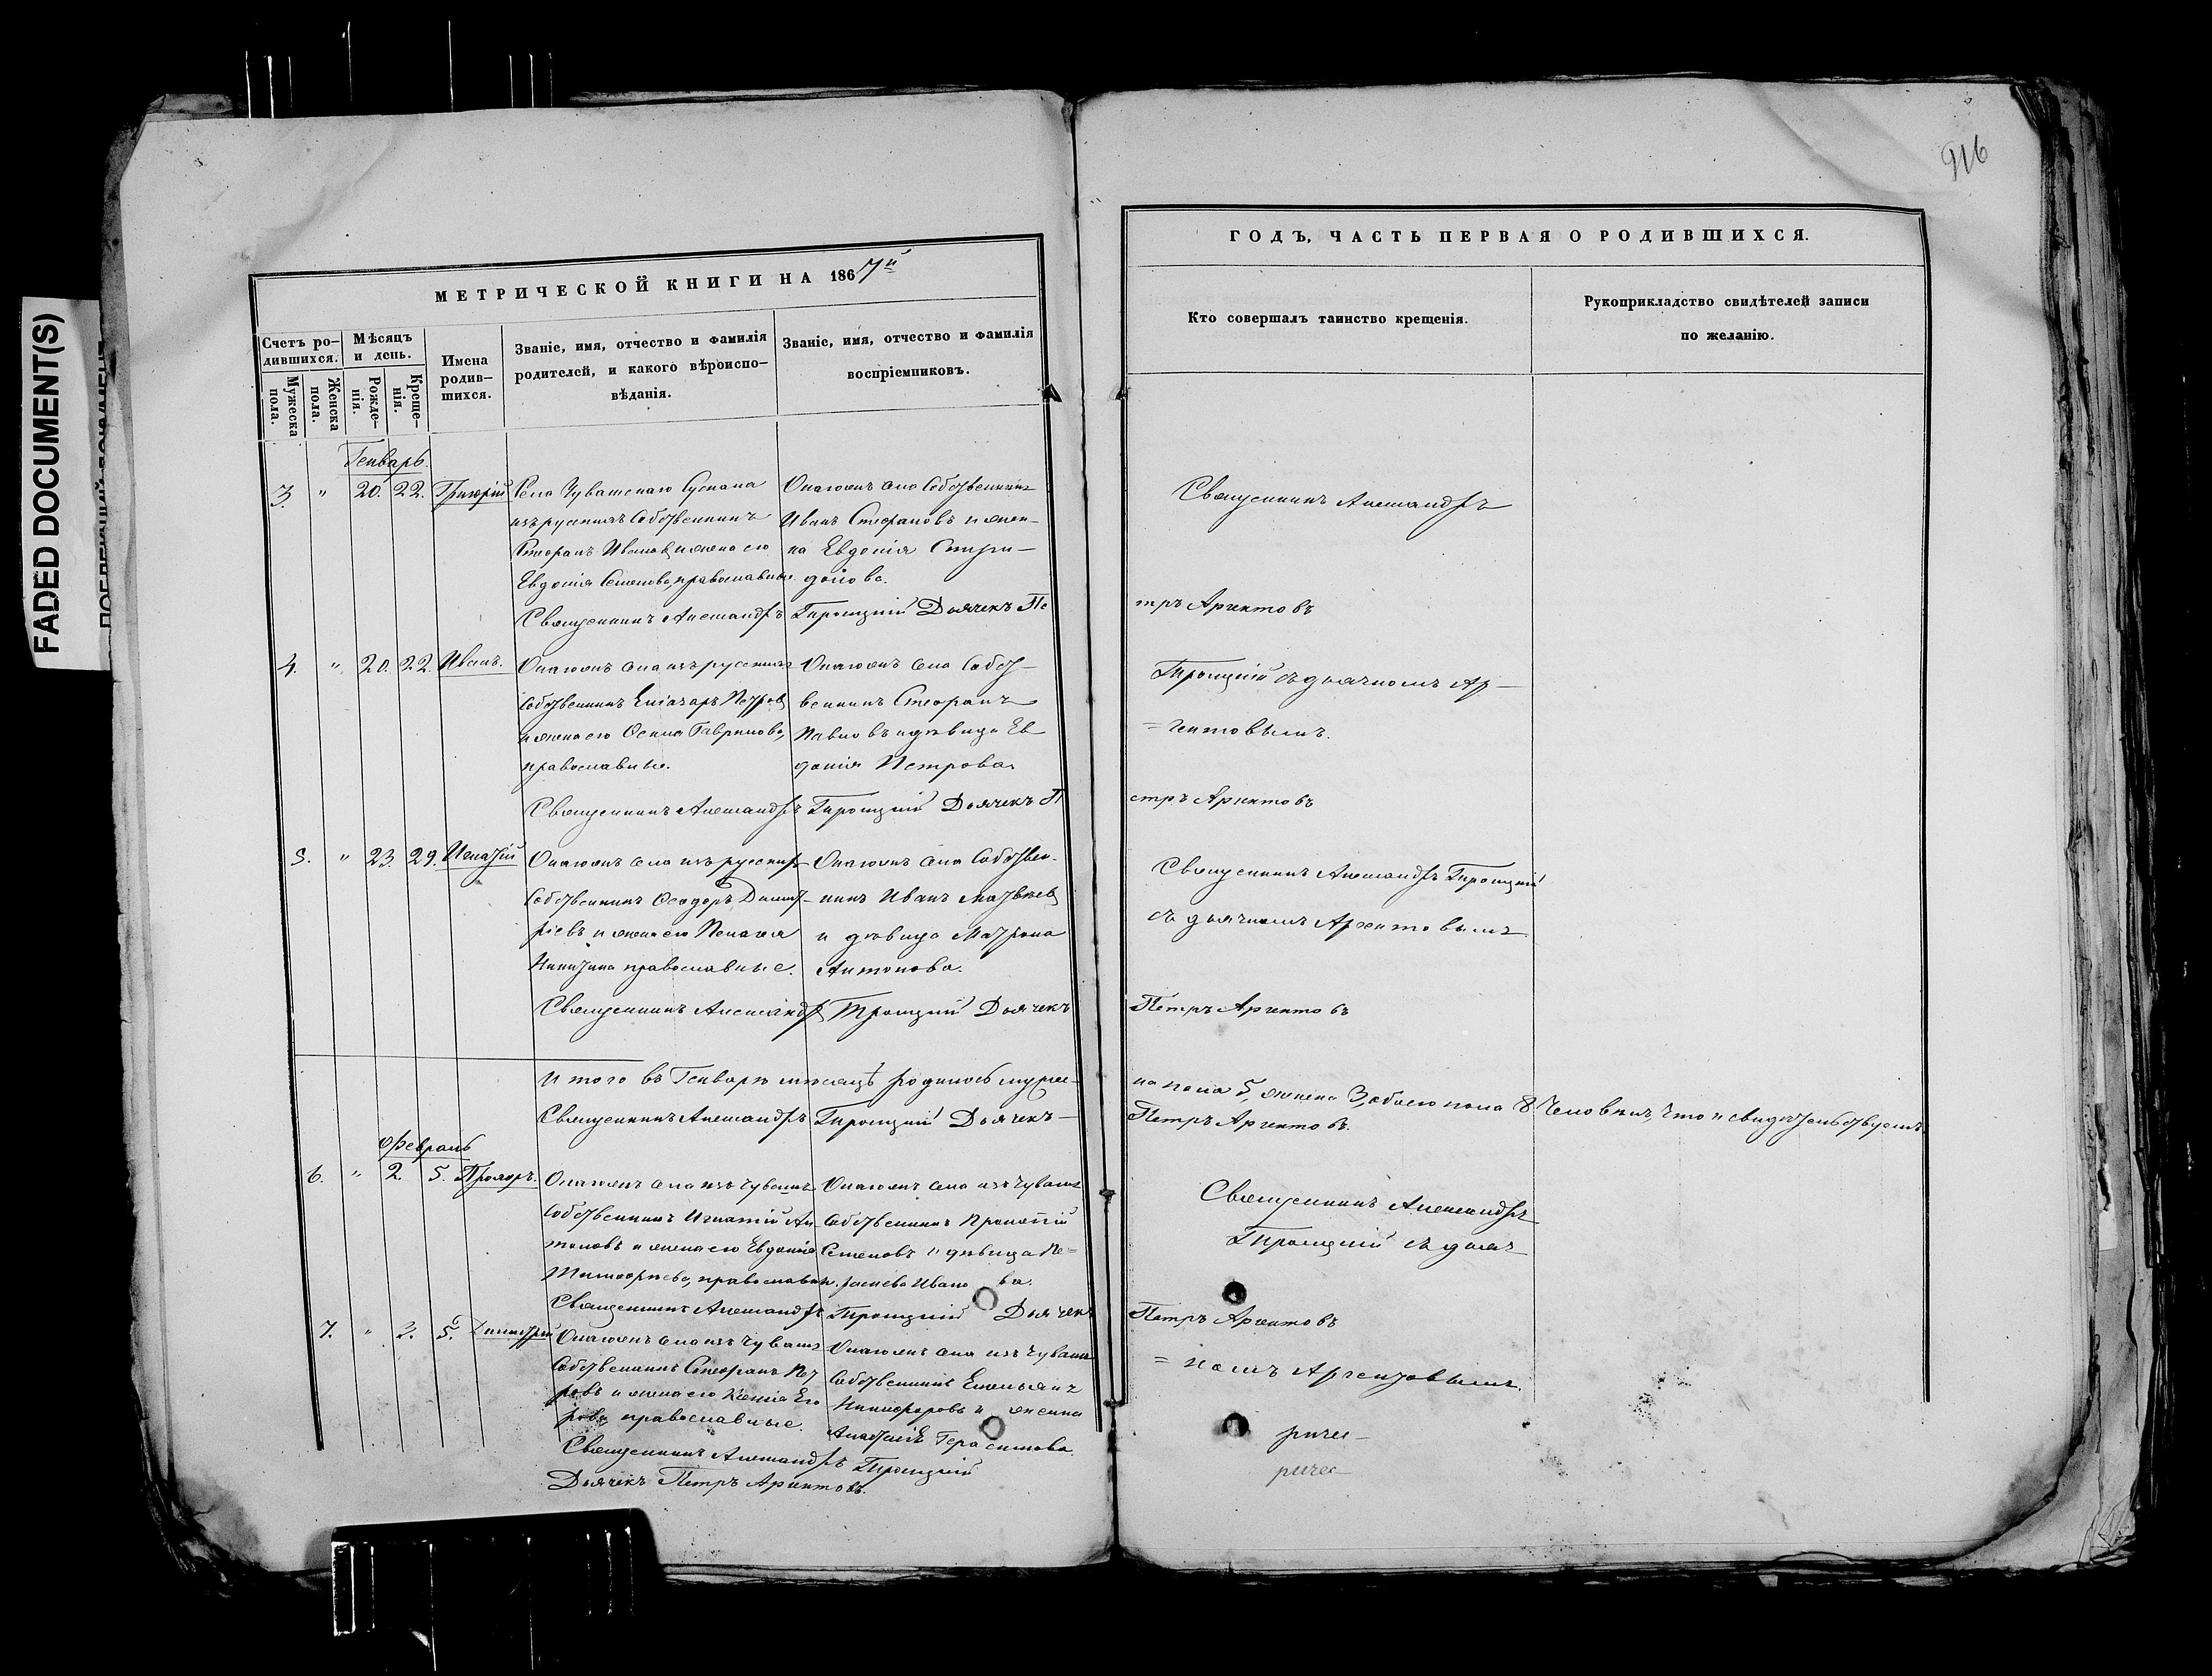 FADED DOCUMENT(S)
916
МЕТРИЧЕСКОЙ КНИГИ НА 1867й
Счетъ ро-
дившихся.
Мужеска
пола.
Женска
пола.
Мѣсяцъ
и день.
Рожде-
нія.
Креще-
нія.
Имена
родив-
шихся.
Званіе, имя, отчество и фамилія
родителей, и какого вѣроиспо-
вѣданія.
Званіе, имя, отчество и фамилія
воспріемниковъ.
Генварь.
3. " 20. 22. Григорій
Села Чувашскаго
изъ русскихъ Собственникъ
Стефанъ Ивановъ и жена его
Евдокія Семенова, православные.
Онагожъ села Собственникъ
Иванъ Стефановъ и жен-
ка Евдокія Спири-
донова.
Священникъ Александръ Троицкій Дьячекъ Пе
4. " 20. 22. Иванъ.
Онагожъ села изъ русскихъ
Собственникъ Елиазаръ Петровъ
и жена его Гаврилова,
православные.
Онагожъ села Собст-
венникъ Стефанъ
Павловъ и дѣвица Ев
докія Петрова.
Священникъ Александръ Троицкій Дьячекъ П
5. " 23. 29. Игнатій
Онагожъ села изъ русскихъ
Собственникъ Феодоръ Димит-
ріевъ и жена его Пелагея
Никитина православные.
Онагожъ села Собствен-
никъ Иванъ Матвѣевъ
и дѣвица Матрона
Антонова.
Священникъ Александръ Троицкій Дьячекъ
Итого въ Генварѣ мѣсяцѣ родилось мужес-
Священникъ Александръ Троицкій Дьячекъ
Февраль
6. " 2. 5. Прохоръ.
Онагожъ села изъ чувашъ
Собственникъ Игнатій Ан-
тоновъ и жена его Евдокія
Тимофѣева, православн.
Онагожъ села изъ чувашъ
Собственникъ Прокопій
Семеновъ и дѣвица Пе=
Иванова.
Священникъ Александръ Троицкій Дьячекъ
7. " 2. 5. Димитрій
Онагожъ села изъ чувашъ
Собственникъ Стефанъ Пет
ровъ и жена его Ксенія Его
рова православные.
Онагожъ села изъ чувашъ
Собственникъ Емельянъ
Никифоровъ и женка
Анастасія Герасимова.
Священникъ Александръ Троицкій
Дьячекъ Петръ Аргентовъ.
ГОДЪ, ЧАСТЬ ПЕРВАЯ О РОДИВШИХСЯ.
Кто совершалъ таинство крещенія.
Рукоприкладство свидѣтелей записи
по желанію.
Священникъ Александръ
тръ Аргентовъ
Троицкій съ дьячкомъ Ар-
= гентовымъ.
етръ Аргентовъ
Священникъ Александръ Троицкій
съ дьячкомъ Аргентовымъ
Петръ Аргентовъ
ка пола 5, женска 3, обоего пола 8 Человѣкъ, что и свидѣтельствуемъ.
Петръ Аргентовъ.
Священникъ Александръ
Троицкій съ дьяч
Петръ Аргентовъ
= комъ Аргентовымъ.